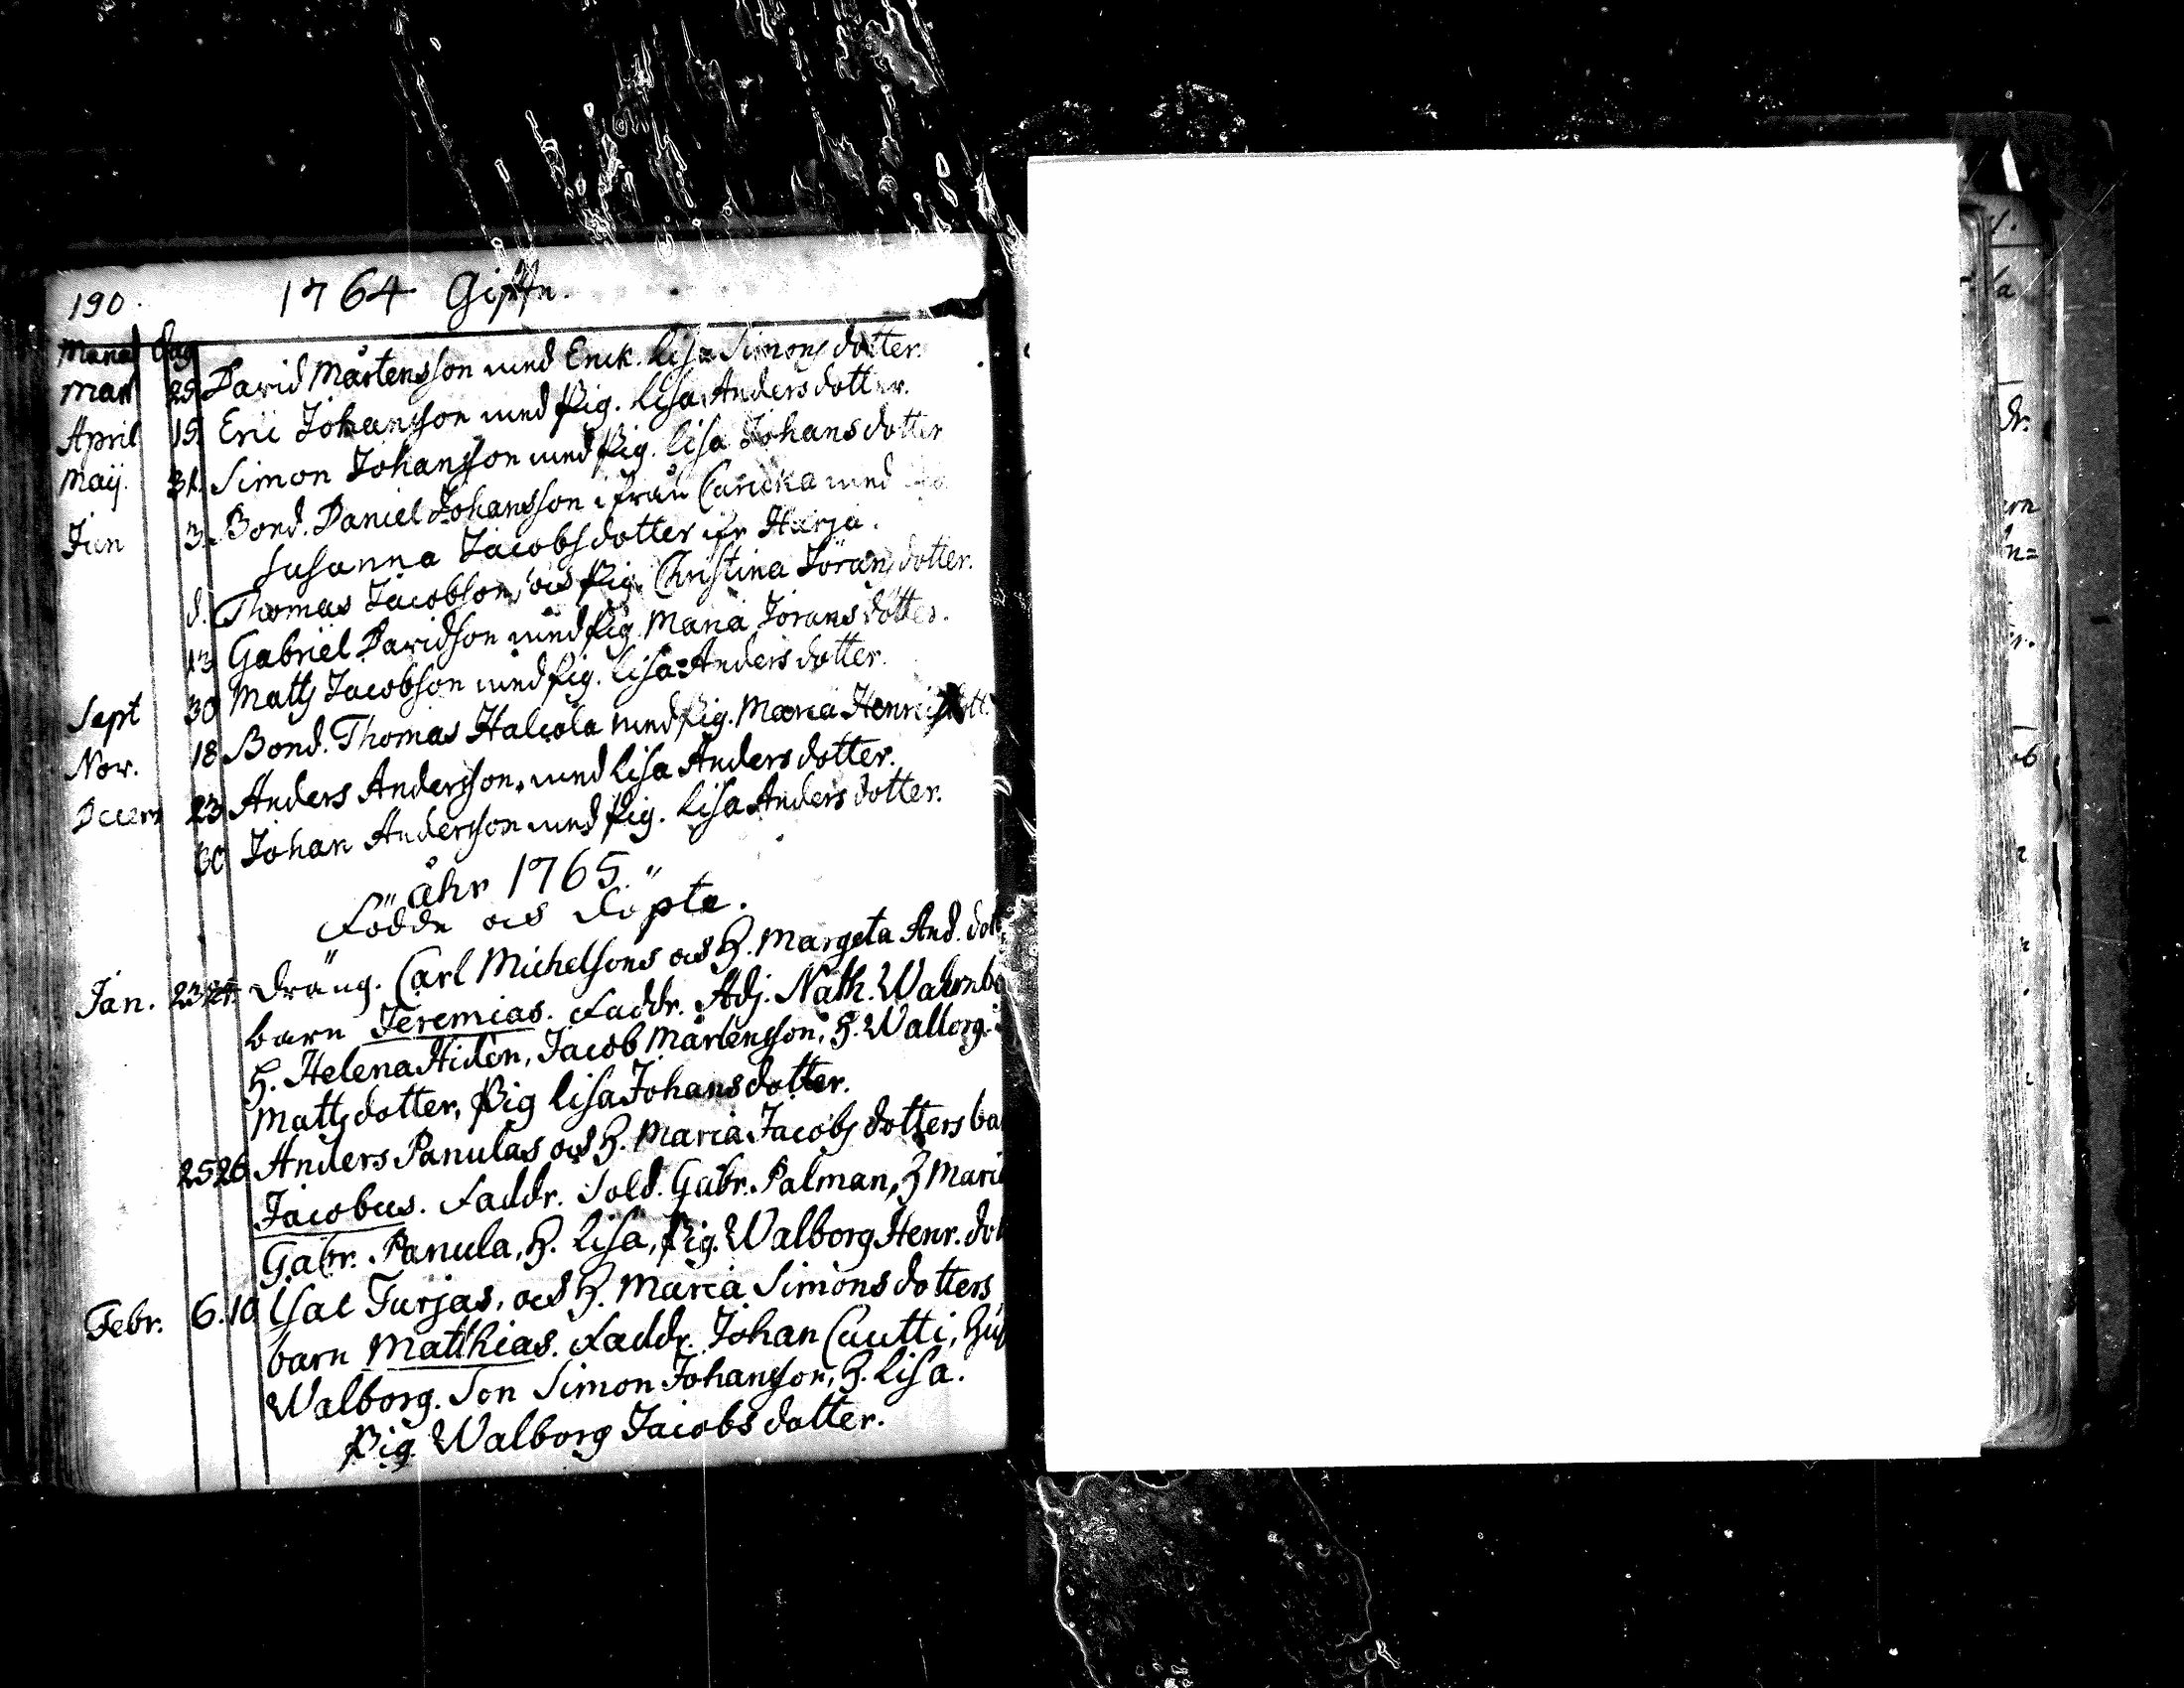 190. 1764 Gifte.
Månad Dag
Mart 25. David Mårtensson med Enck. Lisa Simonsdotter.
April 15. Eric Johansson med Pig. Lisa Andersdotter.
Maij. 31. Simon Johansson med Pig. Lisa Johansdotter
Jun 3. Bond. Daniel Johansson ifrån med
Susanna Jacobsdotter ifr Harja.
d. Thomas Jacobson, och Pig. Christina Jöransdotter.
13 Gabriel Davidson med Pig. Maria Joransdotter.
Sept 30 Matts Jacobson med Pig. Lisa Andersdotter.
Nov. 18 Bond. Thomas Halcola med Pig. Maria Henricsdott.
Decem 23 Anders Andersson, med Lisa Andersdotter.
30 Johan Andersson med Pig. Lisa Andersdotter.
åhr 1765.
Födde och döpte.
Jan. 23 24. Dräng. Carl Michelsons och H. Margeta And. dott
barn Jeremias. Faddr. Adj. Nath.
H. Helena Hidén, Jacob Mårtensson, H. Walborg.
Mattsdotter, Pig Lisa Johansdotter.
25 26 Anders Panulas och H. Maria Jacobsdotters ba
Jacobus. Faddr. Sold. Gabr. Palman, H Mari
Gabr. Panula, H. Lisa, Pig. Walborg Henr. dot
Febr. 6. 10 Isac Turjas, och H. Maria Simonsdotters
barn Matthias. Faddr. Johan Cautti, Hus
Walborg. Son Simon Johansson, H. Lisa.
Pig Walborg Jacobsdotter.